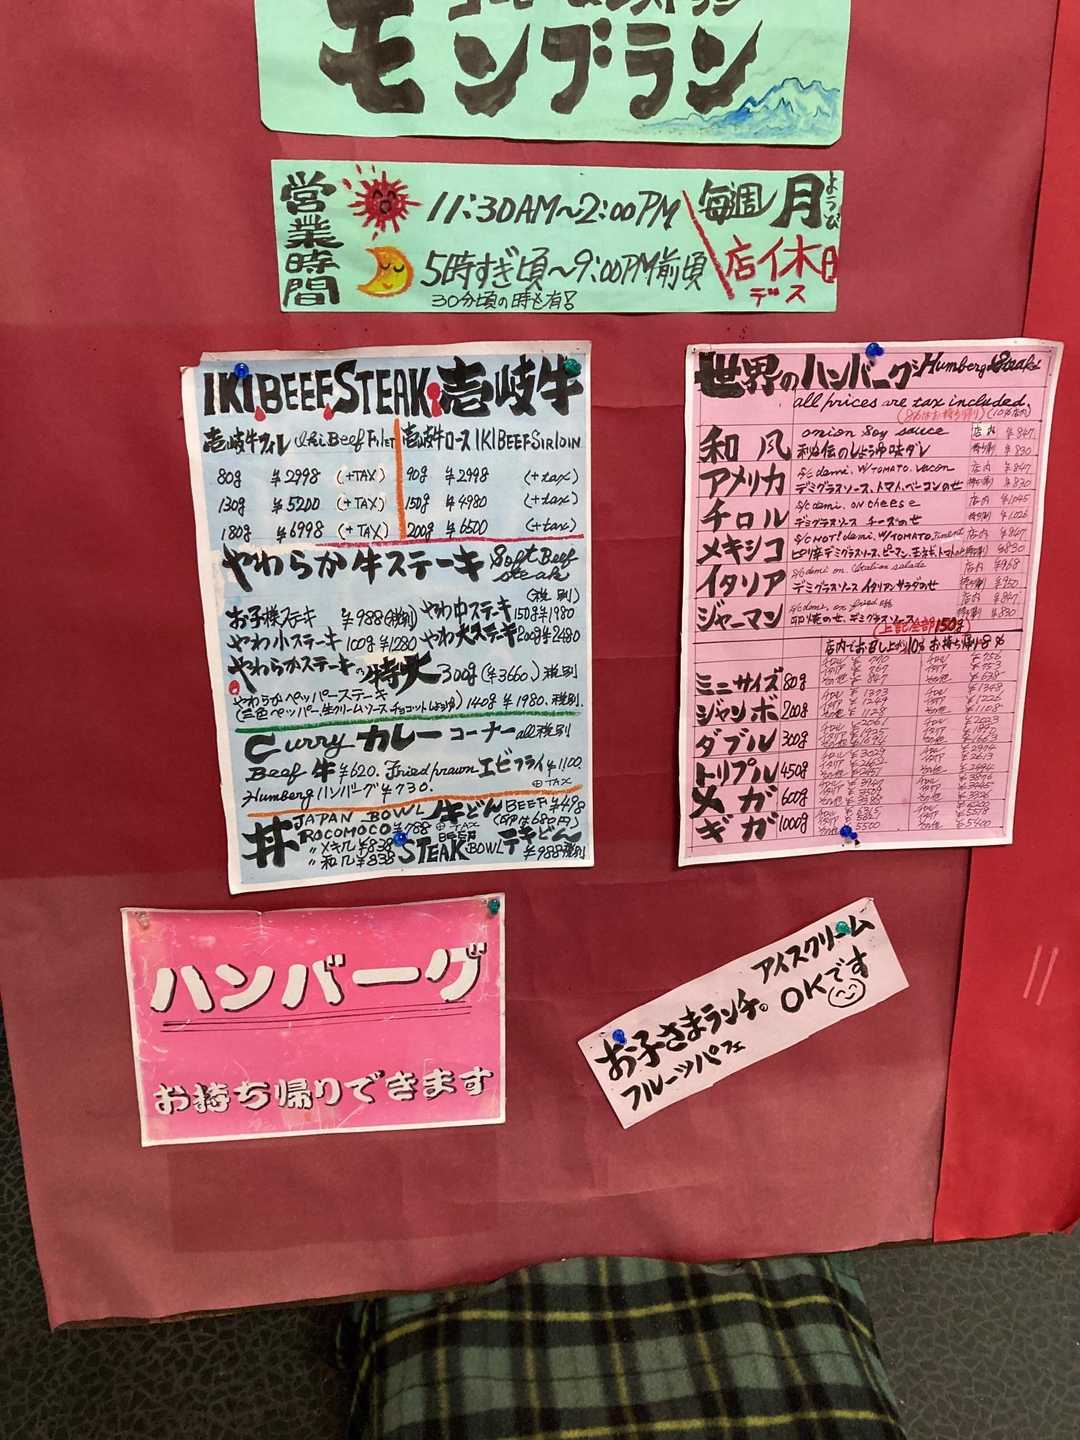 モンブラン
営業時間
11:30AM~2:00PM
5時すぎ頃~9:00PM前頃
30分頃の時も有!
毎週月ようび
店休日
デス
IKI BEEF STEAK 壱岐牛
壱岐牛フィレ Iki Beef Filet
80g ¥2998 (+TAX)
130g ¥5200 (+TAX)
180g ¥6998 (+TAX)
壱岐牛ロース IKI BEEF SIRLOIN
90g ¥2998 (+tax)
150g ¥4980 (+tax)
200g ¥6500 (+tax)
やわらか牛ステーキ Soft Beef steak
(税別)
お子様ステーキ ¥988(税別) やわ中ステーキ 150g ¥1980
やわ小ステーキ 100g ¥1280 やわ大ステーキ 200g ¥2480
やわらかステーキの特大 300g (¥3660) 税別
やわらかペッパーステーキ
(三色ペッパー、生クリームソース チョコットしょうゆ) 140g ¥1980. 税別.
Curry カレー コーナー all税別
Beef 牛 ¥620. Fried prawn エビフライ ¥1100.
Humberg ハンバーグ ¥730. ⊕TAX
丼 JAPAN BOWL 牛どん BEEF ¥498
ROCOMOCO ¥788 ⊕TAX
〃メキル ¥838
〃和ル ¥838
STEAK BOWL テキどん
¥988税別
世界のハンバーグ Humberg Steaks
all prices are tax included.
(8%はお持ち帰り) (10%店内)
和風 onion Soy sauce 店内 ¥847
秘伝のしょうゆ味ダレ 持帰り ¥830
アメリカ S/C demi. W/TOMATO. vacon 店内 ¥847
デミグラスソース、トマト、ベーコンのせ 持帰り ¥830
チロル S/C demi. on cheese 店内 ¥1045
デミグラスソース チーズのせ 持帰り ¥1026
メキシコ S/C HOT! demi. W/TOMATO 店内 ¥847
ピリ辛デミグラスソース、ピーマン、玉ネギ、トマト 持帰り ¥830
イタリア S/C demi on. italian salade 店内 ¥968
デミグラスソース イタリアンサラダのせ 持帰り ¥950
ジャーマン S/C demi, on fried egg 店内 ¥847
卵焼のせ、デミグラスソース 持帰り ¥830
(上記全部150g)
店内でお召し上がり10% お持ち帰り8%
ミニサイズ 80g
ジャンボ 200g
ダブル 300g
トリプル 450g
メガ 600g
ギガ 1000g
ハンバーグ
お持ち帰りできます
アイスクリーム
お子さまランチ。OKです
フルーツパフェ